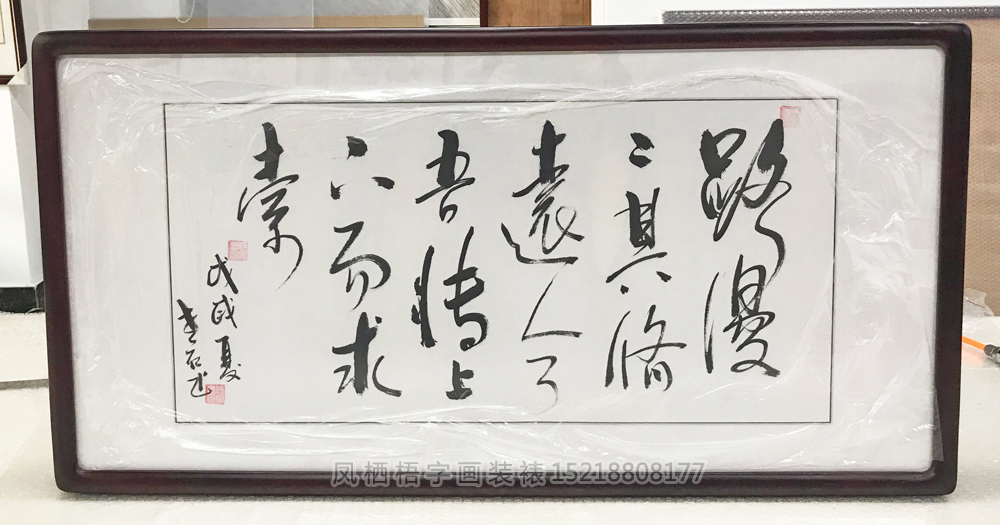 路漫
〻其脩
遠兮
吾将上
下而求
索
戊戌夏
凤栖梧字画装裱 15218808177